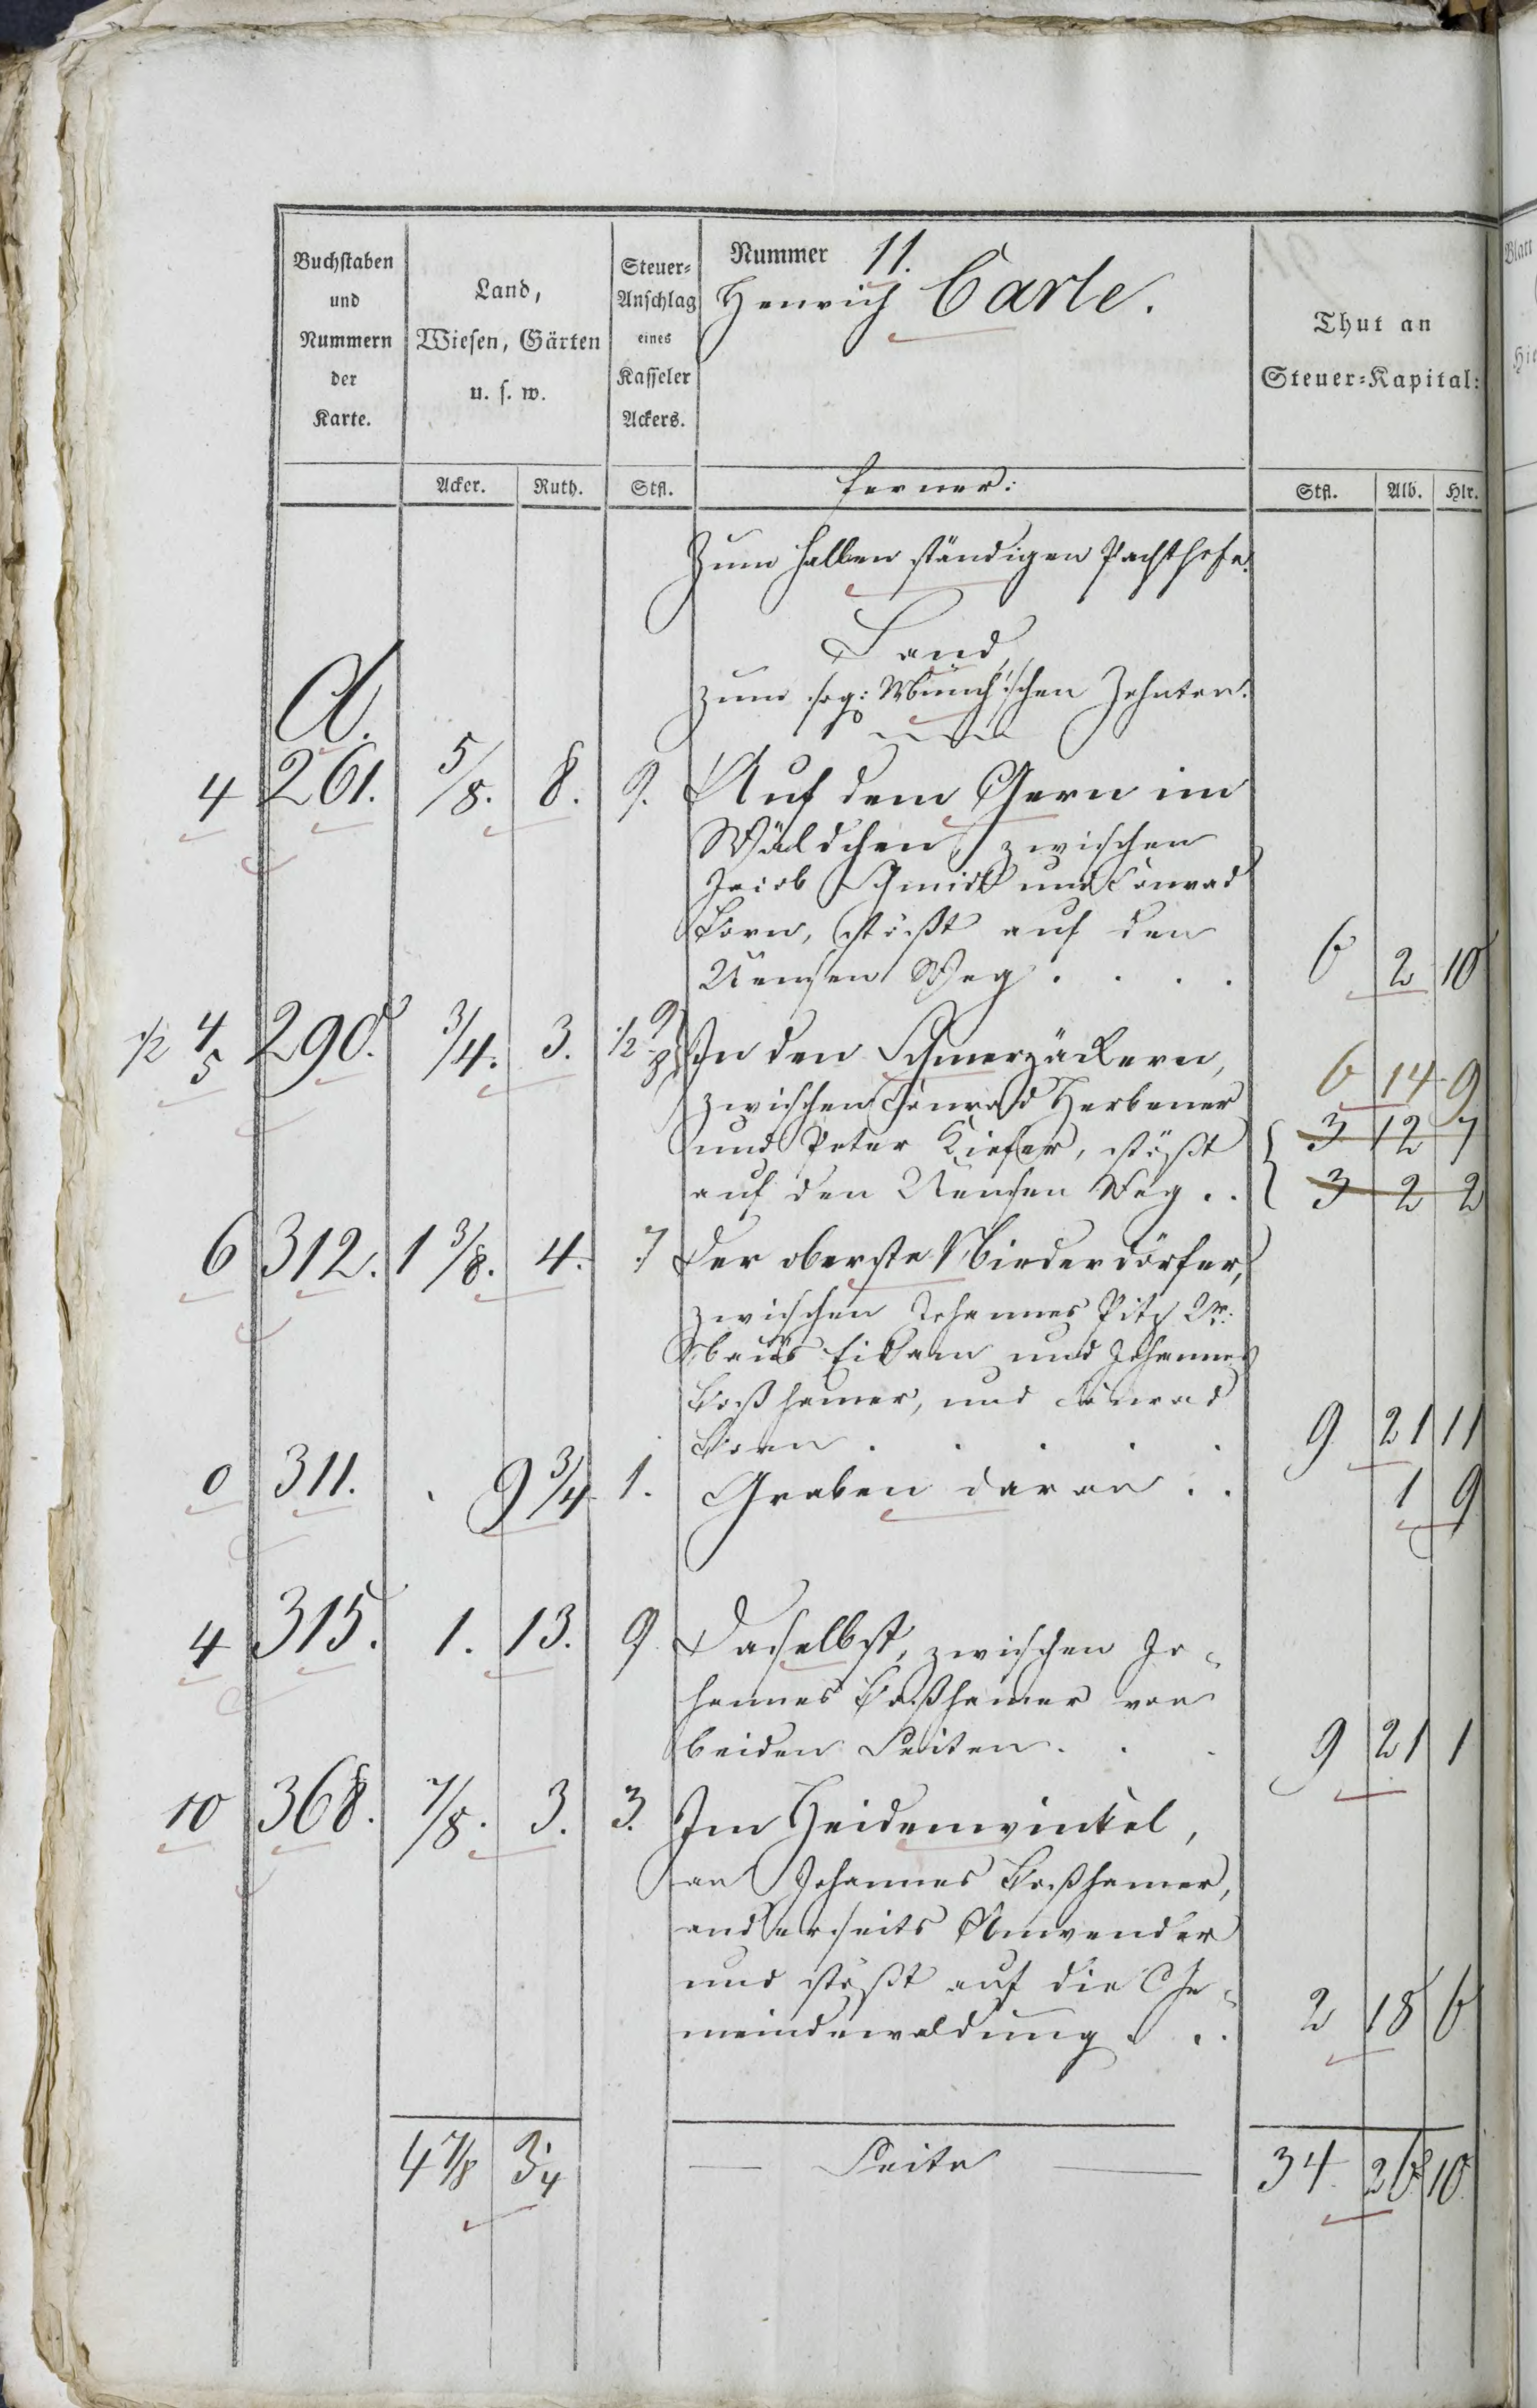 Buchstaben und Nummern der Karte.
Land, Wiesen, Gärten u. s. w.
Steuer-Anschlag eines Kasseler Ackers.
Nummer 11.
Henrich Carle.
Thut an Steuer-Kapital:
Acker. Ruth. Stfl. ferner: Stfl. Alb. Hlr.
Zum halben ständigen Pachthofe.
Land,
zum sog: Münch'schen Zehnten.
A.
4 261. 5/8. 8. 9. Auf dem Gern im
Wäldchen, zwischen
Jacob Schmidt und Conrad
Born, stößt auf den
Weg . . . . 6 2 10
1/2 4 5 290. 3/4. 3. 1/2 9 8 In den Schmerzäckern,
6 14 9
zwischen Conrad Herbener
und Peter Kiefer, stößt 3 12 7
auf den Weg . . 3 2 2
6 312. 1 3/8. 4. 7 Der oberste Niederdörfer,
zwischen Johannes Pitz
Eidam und Johannes
Boßhamer, und Conrad
Born . . . . . 9 21 11
0 311. . 9 3/4 1. Graben daran . . 1 9
4 315. 1. 13. 9 Daselbst, zwischen Jo-
hannes Boßhamer von
beiden Seiten . . . 9 21 1
10 368. 7/8. 3. 3. Im Heidenwinkel,
an Johannes Boßhamer,
anderseits Anwender
und stößt auf die Ge-
meindewaldung . . . 2 18 6
4 7/8 3 3/4 Seite 34. 26 10